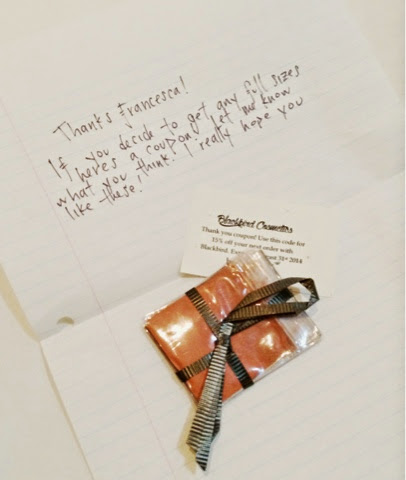 Thanks Francesca!
If you decide to get any full sizes
here's a coupon! Let me know
what you think. I really hope you
like these!
Blackbird Cosmetics
Thank you coupon! Use this code for
15% off your next order with
Blackbird. 31st 2014